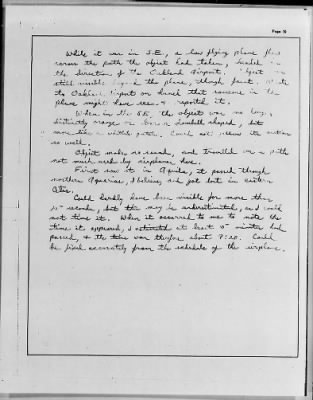 Page
While it was in S.E., a low flying plane flew
across the path the object had taken, headed in
the direction of the Oakland Airport. Object was
still visible beyond the plane, though faint. Wrote
to Oakland Airport on hunch that someone in the
plane might have seen & reported it.
When in the SE, the object was no longer
distinctly orange or dumbbell shaped, but
more like a white patch. Could not its motion
so well.
Object made no sound, and travelled on a path
not much used by airplanes here.
First saw it in Aquila, it passed through
northern Aquarius, I believe, and got lost in eastern
Cetus.
Could hardly have been visible for more than
seconds, but this may be underestimated, as I could
not time it. When it occurred to me to note the
time it appeared, I estimated at least 5 minutes had
passed, & the time was therefore about
be fixed accurately from the schedule of the airplane.